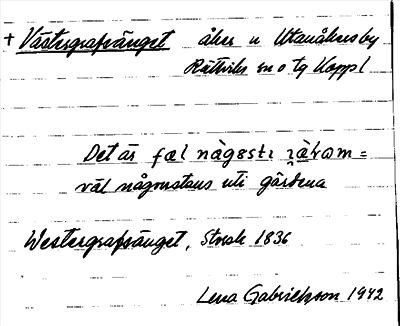 + Västergrafsänget åker n Utanåkersby
Rättviks sn o tg Koppl
Det är fæl nàgəstɪ ɪ̯æ̀ʀam =
väl någonstans uti gärdena
Westergrafsänget, Storsk 1836
Lena Gabrielsson 1942